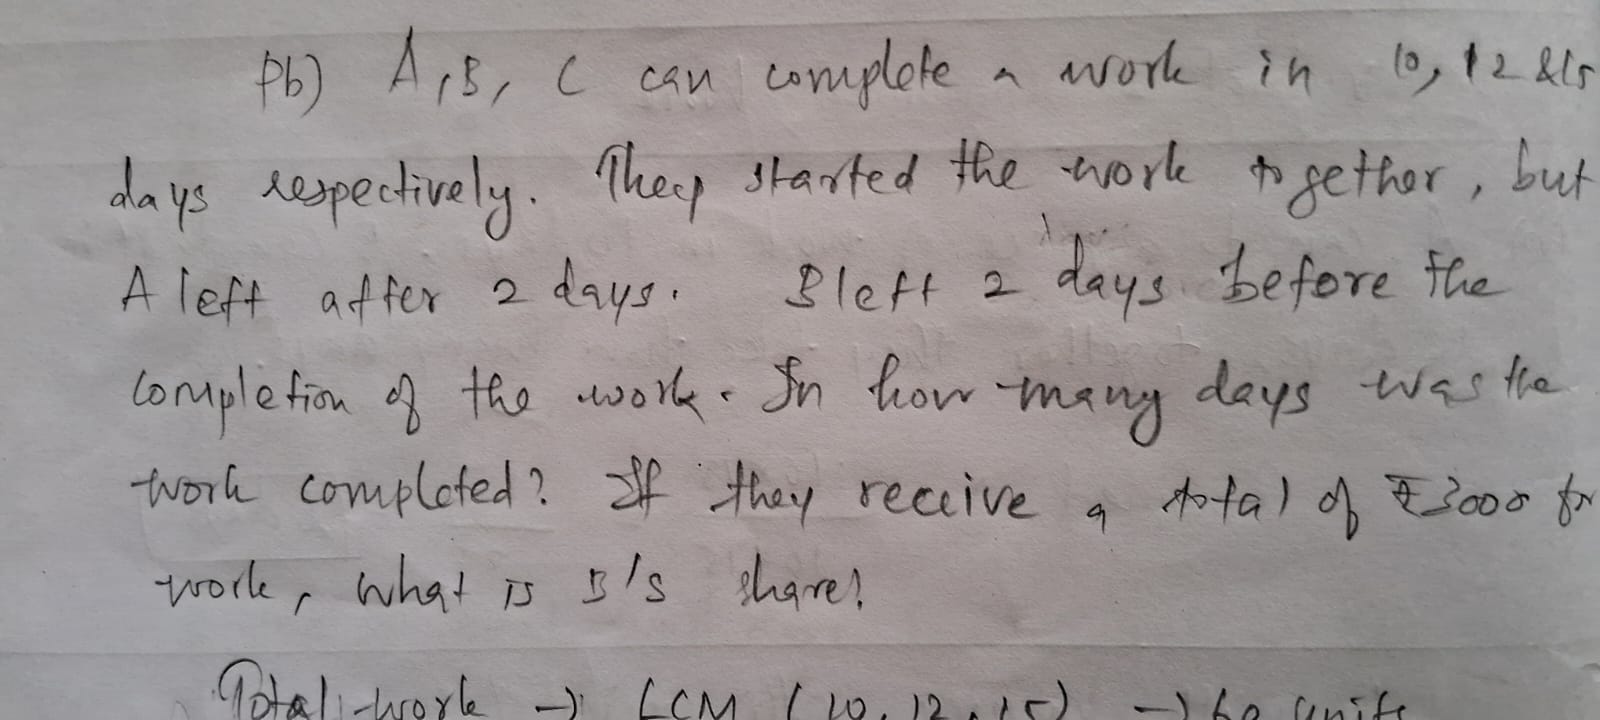 Pb) A, B, C can complete a work in 10, 12 & 15
days respectively. They started the work together, but
A left after 2 days. B left 2 days before the
completion of the work. In how many days was the
work completed? If they receive a total of ₹3000 for
work, what is B's share?
Total work → LCM (10, 12, 15) → 60 units